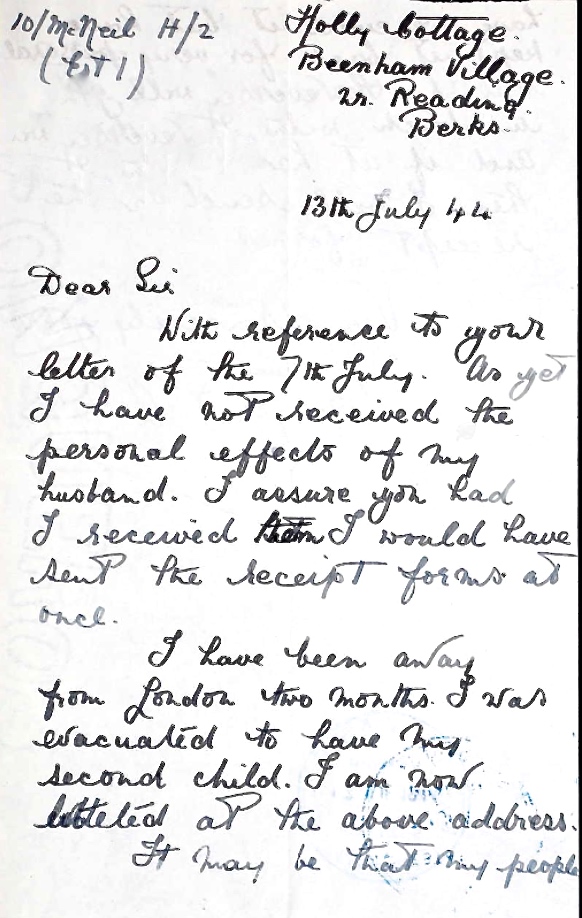 10/McNeil H/2
(EST1)
Holly Cottage.
Beenham Village.
nr. Reading.
Berks.
13th July 44
Dear Sir
With reference to your
letter of the 7th July. As yet
I have not received the
personal effects of my
husband. I assure you had
I received them I would have
sent the receipt forms at
once.
I have been away
from London two months. I was
evacuated to have my
second child. I am now
billeted at the above address.
It may be that my people